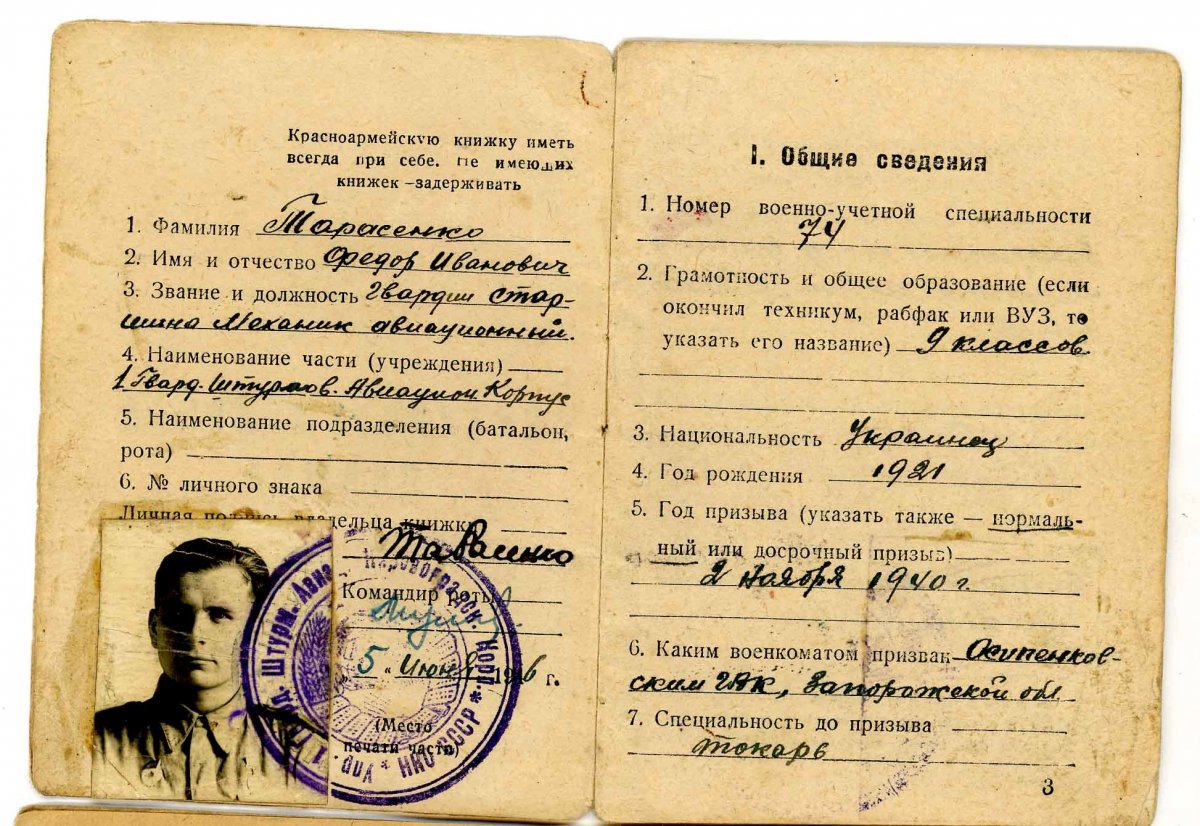 Красноармейскую книжку иметь
всегда при себе. Не имеющих
книжек – задерживать
1. Фамилия Тарасенко
2. Имя и отчество Федор Иванович
3. Звание и должность Гвардии стар-
шина Механик авиационный.
4. Наименование части (учреждения)
1 Гвард. Штурмов. Авиацион Корпус
5. Наименование подразделения (батальон,
рота)
6. № личного знака
Личная подпись владельца книжки
Тарасенко
Командир роты
"5" июня 1946 г.
(Место
печати части)
1 Гвард. Штурм. Авиа Кировоградск. Корп. * Упр. * НКО СССР *
I. Общие сведения
1. Номер военно-учетной специальности
74
2. Грамотность и общее образование (если
окончил техникум, рабфак или ВУЗ, то
указать его название) 9 классов.
3. Национальность Украинец
4. Год рождения 1921
5. Год призыва (указать также — нормаль-
ный или досрочный призыв)
2 ноября 1940 г.
6. Каким военкоматом призван Осипенков-
ским ГВК, Запорожской обл
7. Специальность до призыва
токарь
3